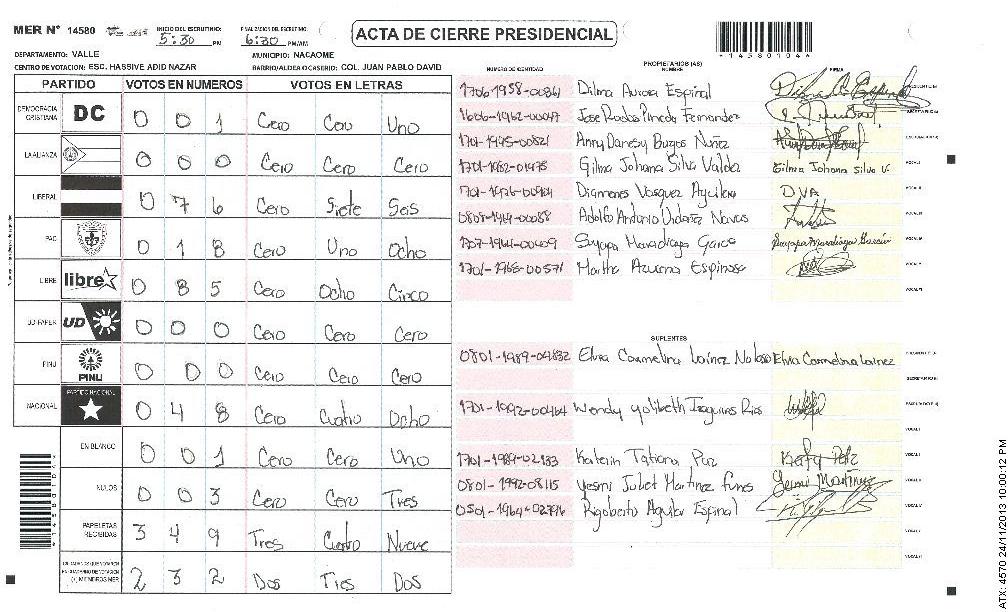 MER N° 14580 INICIO DEL ESCRUTINIO: 5:30 PM FINALIZACION DEL ESCRUTINIO: 6:30 PM/AM
ACTA DE CIERRE PRESIDENCIAL
*14580104*
DEPARTAMENTO: VALLE MUNICIPIO: NACAOME
CENTRO DE VOTACION: ESC. HASSIVE ADID NAZAR BARRIO/ALDEA O CASERIO: COL. JUAN PABLO DAVID
PARTIDO VOTOS EN NUMEROS VOTOS EN LETRAS
DEMOCRACIA CRISTIANA DC 0 0 1 Cero Cero Uno
LA ALIANZA 0 0 0 Cero Cero Cero
LIBERAL 0 7 6 Cero Siete Seis
PAC 0 1 8 Cero Uno Ocho
LIBRE libre 0 8 5 Cero Ocho Cinco
UD-FAPER UD 0 0 0 Cero Cero Cero
PINU PINU 0 0 0 Cero Cero Cero
NACIONAL PARTIDO NACIONAL 0 4 8 Cero Cuatro Ocho
EN BLANCO 0 0 1 Cero Cero Uno
NULOS 0 0 3 Cero Cero Tres
PAPELETAS RECIBIDAS 3 4 9 Tres Cuatro Nueve
CIUDADANOS QUE VOTARON EN CUADERNO DE VOTACION (+) MIEMBROS MER 2 3 2 Dos Tres Dos
NUMERO DE IDENTIDAD PROPIETARIOS (AS) NOMBRE FIRMA
1706-1958-00361 Dilma Aurora Espinal PRESIDENTE (A)
1606-1962-00047 Jose Pineda Fernandez SECRETARIO (A)
Anny Danesy Burgos Nuñez ESCRUTADOR (A)
1701-1982-01475 Gilma Johana Silva Valdez Gilma Johana Silva V. VOCAL I
Diamones Vasquez Aguilera DVA VOCAL II
Adolfo Antonio Navas VOCAL III
Suyapa Maradiaga Garcia Suyapa Maradiaga Garcia VOCAL IV
1701-1965-00571 Martha Azucena Espinoza VOCAL V
VOCAL VI
SUPLENTES
Elvia Carmelina Lainez Elvia Carmelina Lainez PRESIDENTE (A)
SECRETARIO (A)
1701-1992-00464 Wendy Yolibeth Izaguirre Rios ESCRUTADOR (A)
VOCAL I
1701-1989-02133 Katerin Tatiana Paz Katy Paz VOCAL II
0801-1992-08115 Yesmi Julibet Martinez Funes Yesmi Martinez VOCAL III
Rigoberto Aguilar Espinal VOCAL IV
VOCAL V
VOCAL VI
*14580104*
ATX: 4570 24/11/2013 10:00:12 PM